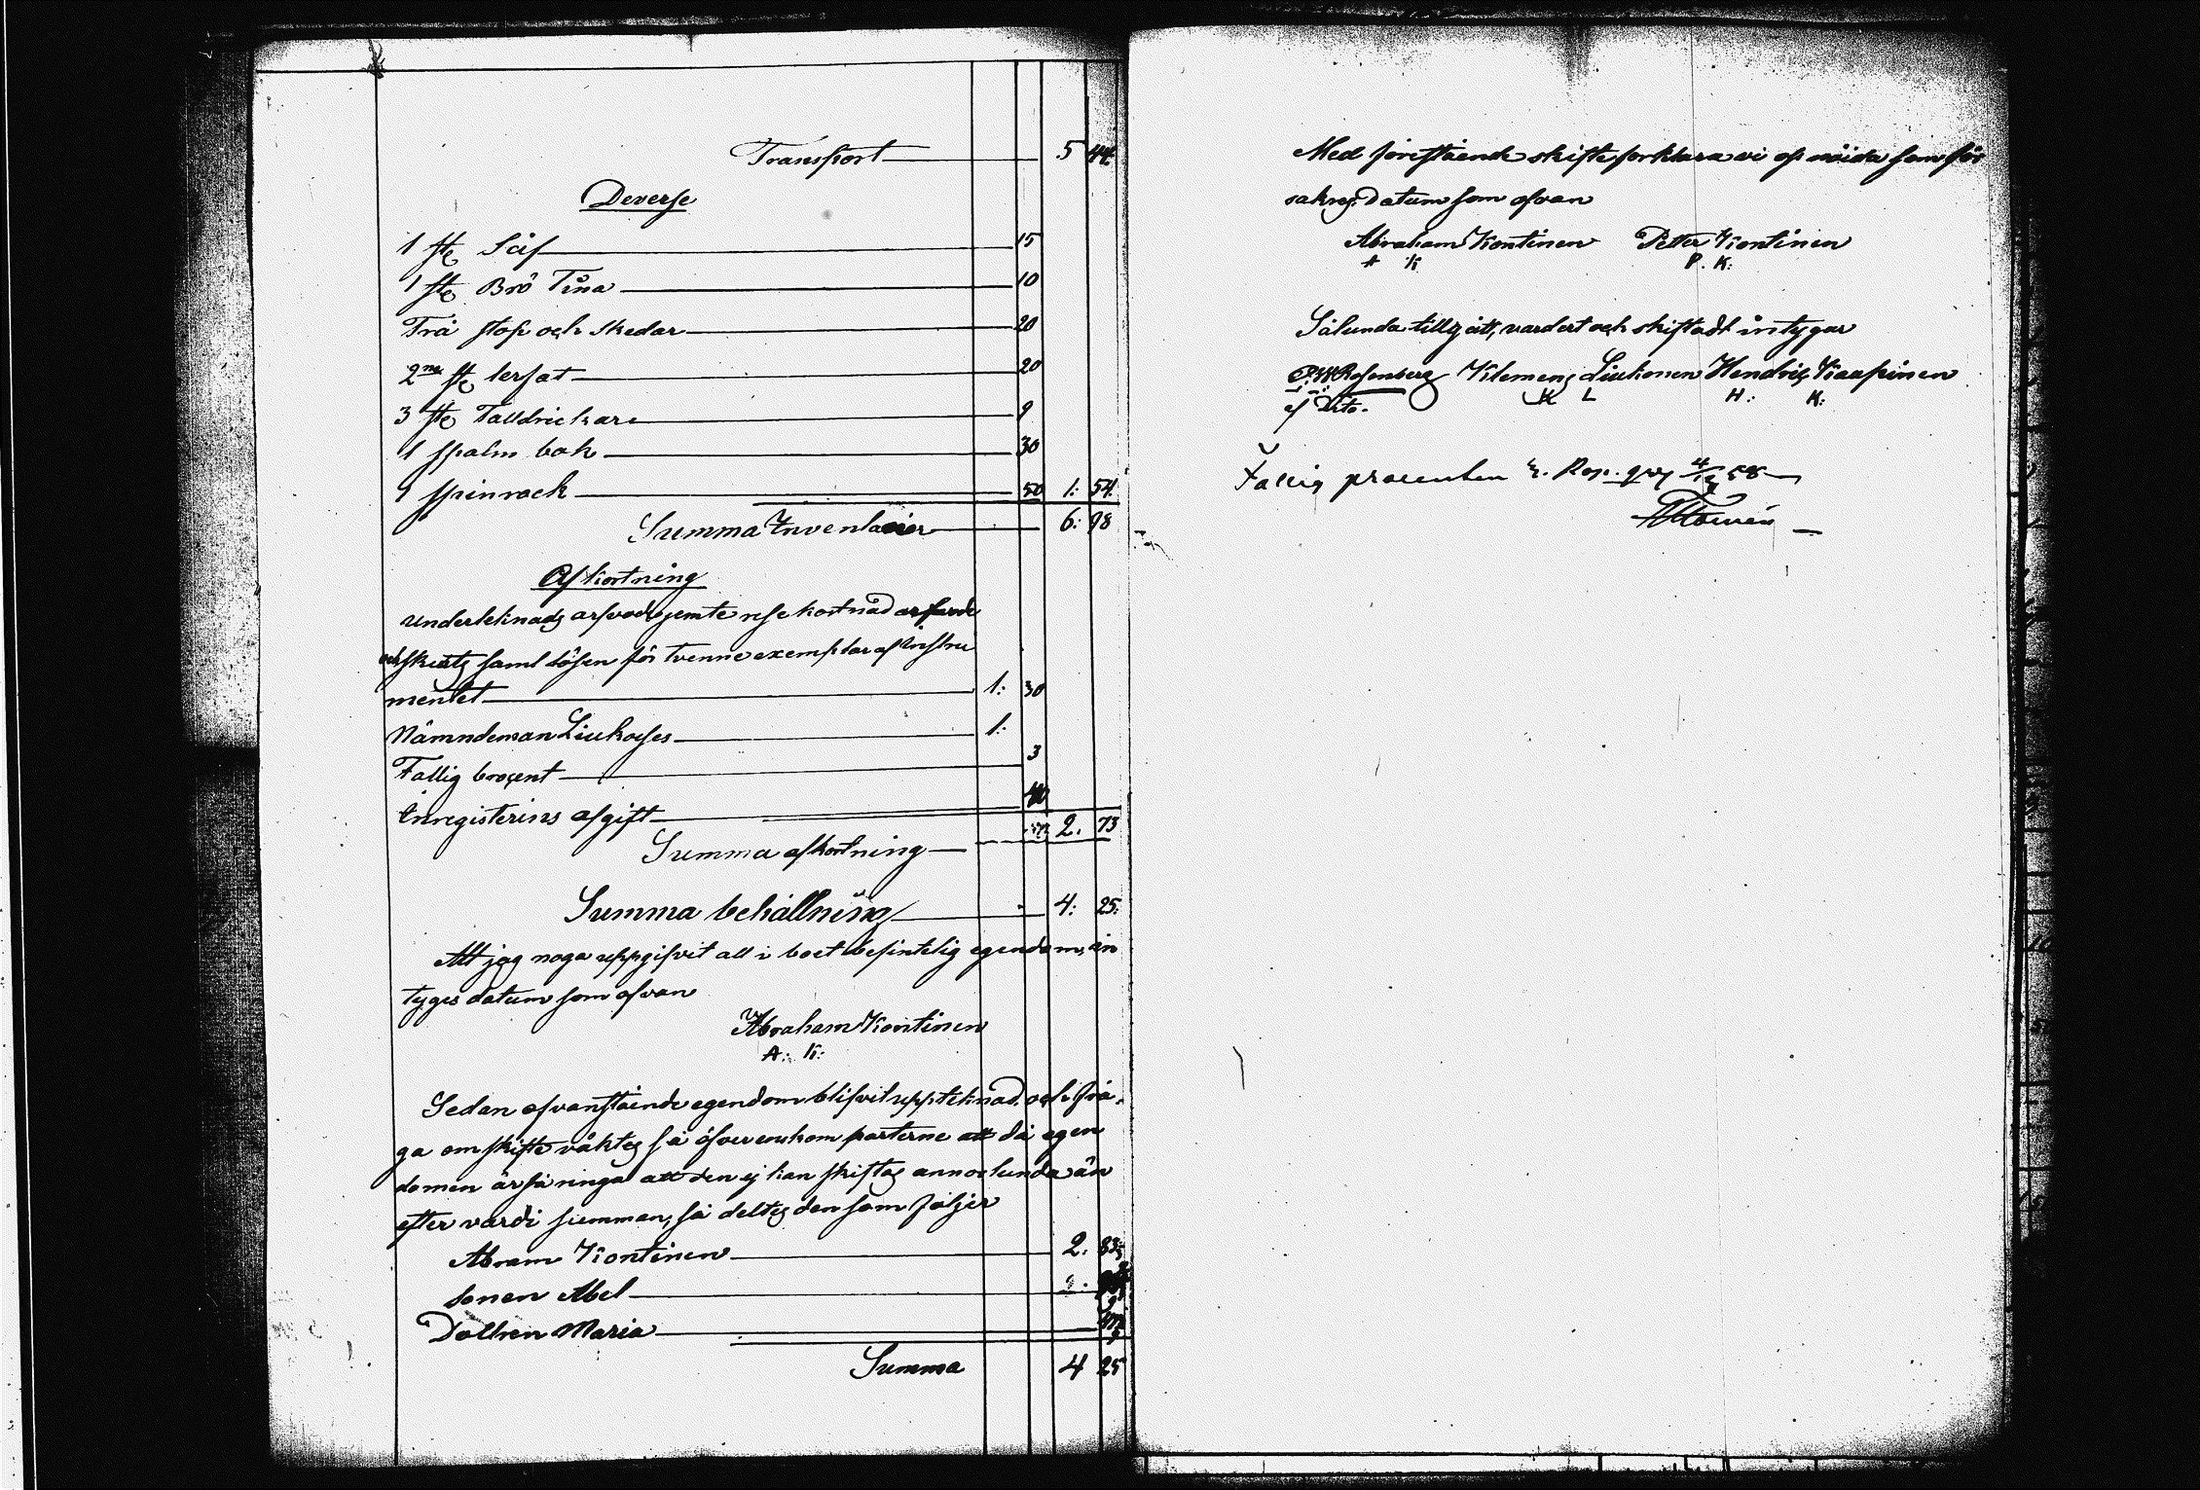 Transport 5 44
Deverse
1 st Såf 15
1 st Brö Tina 10
Trä stop och skedar 20
2ne st lerfat 20
3 st Talldrickar 9
1 spalm bok 30
1 spinrock 50 1: 54
Summa Inventarier 6: 98
Afkortning
underteknads arfvode jemte rese kostnad
och skiuts samt lösen för tvenne exemplar af Instru
mentet 1: 30
Nämndeman Liukoses 1:
Fattig procent 3
Inregisterins afgift 40
2. 73
Summa afkortning
Summa behållning 4: 25:
Att jag noga uppgifvit all i boet befintelig egendom, in
tyges datum som ofvan
Abraham Kontinen
A: K:
Sedan ofvanstående egendom blifvit uppteknad och frå-
ga om skifte väktes så öfverenskom parterne att då egen
domen är så ringa att den ej kan skiftas annorlunda än
efter värdi summan, så deltes den som följer
Abram Kontinen 2. 83
sonen Abel
Dottren Maria
Summa 4 25
Med förestående skifte förklara vi os nöida som för
sakras datum som ofvan
Abraham Kontinen Petter Kontinen
A K P. K:
Sålunda tillgått, värdert och skiftadt intygar
P. W. Rosenberg Klemens Liukonen Hendric Kaupinen
K L H: K:
Fattig procenten